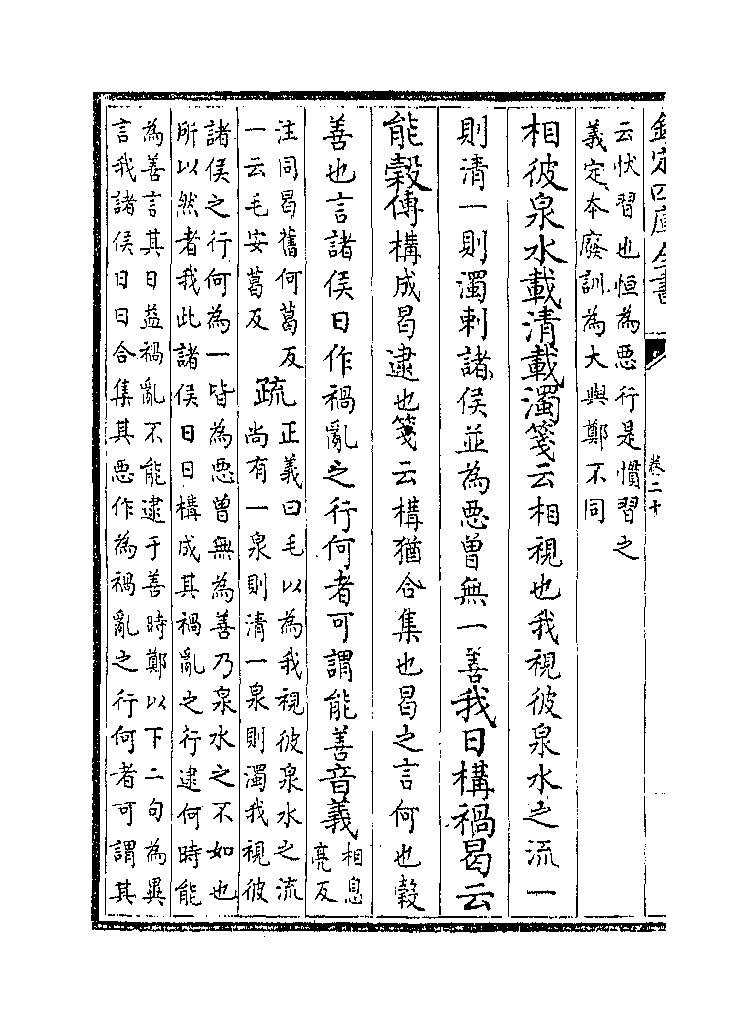 欽定四庫全書
卷二十
云忕習也恒為惡行是慣習之
義定本廢訓為大與鄭不同
相彼泉水載清載濁箋云相視也我視彼泉水之流一
則清一則濁刺諸侯並為惡曾無一善我日構禍曷云
能穀傳構成曷逮也箋云構猶合集也曷之言何也穀
善也言諸侯日作禍亂之行何者可謂能善音義
相息
亮反
注同曷舊何葛反
一云毛安葛反
疏
正義曰毛以為我視彼泉水之流
尚有一泉則清一泉則濁我視彼
諸侯之行何為一皆為惡曾無為善乃泉水之不如也
所以然者我此諸侯日日構成其禍亂之行逮何時能
為善言其日益禍亂不能逮于善時鄭以下二句為異
言我諸侯日日合集其惡作為禍亂之行何者可謂其